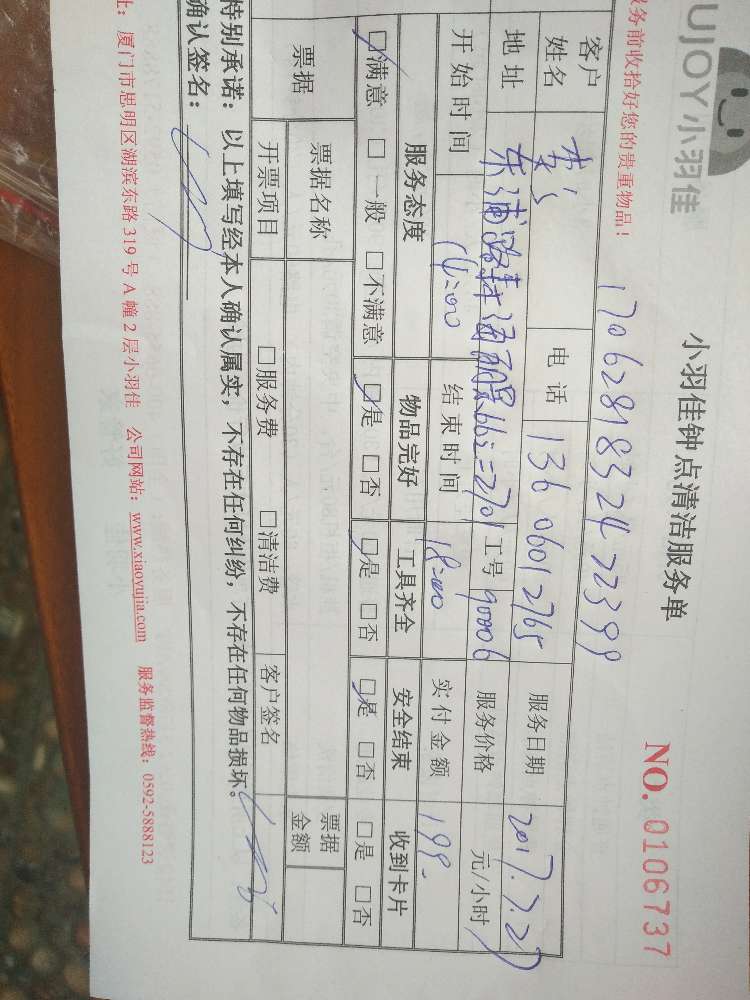 UJOY小羽佳
小羽佳钟点清洁服务单
NO. 0106737
务前收拾好您的贵重物品！
170628183242399
客户姓名 李 电话 13606012765 服务日期 2017.7.27
地址 东浦路 2701 工号 90006 服务价格 元/小时
开始时间 14:00 结束时间 18:00 实付金额 199.
服务态度 物品完好 工具齐全 安全结束 收到卡片
□满意 □一般 □不满意 □是 □否 □是 □否 □是 □否 □是 □否
票据 票据名称 票据金额
开票项目 □服务费 □清洁费 客户签名
特别承诺：以上填写经本人确认属实，不存在任何纠纷，不存在任何物品损坏。
确认签名：
址：厦门市思明区湖滨东路 319 号 A 幢 2 层小羽佳 公司网站：www.xiaoyujia.com 服务监督热线：0592-5888123